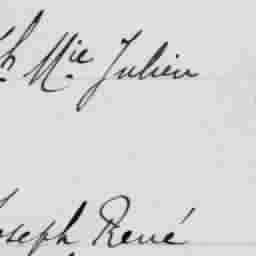 h Mie Julien
Joseph René